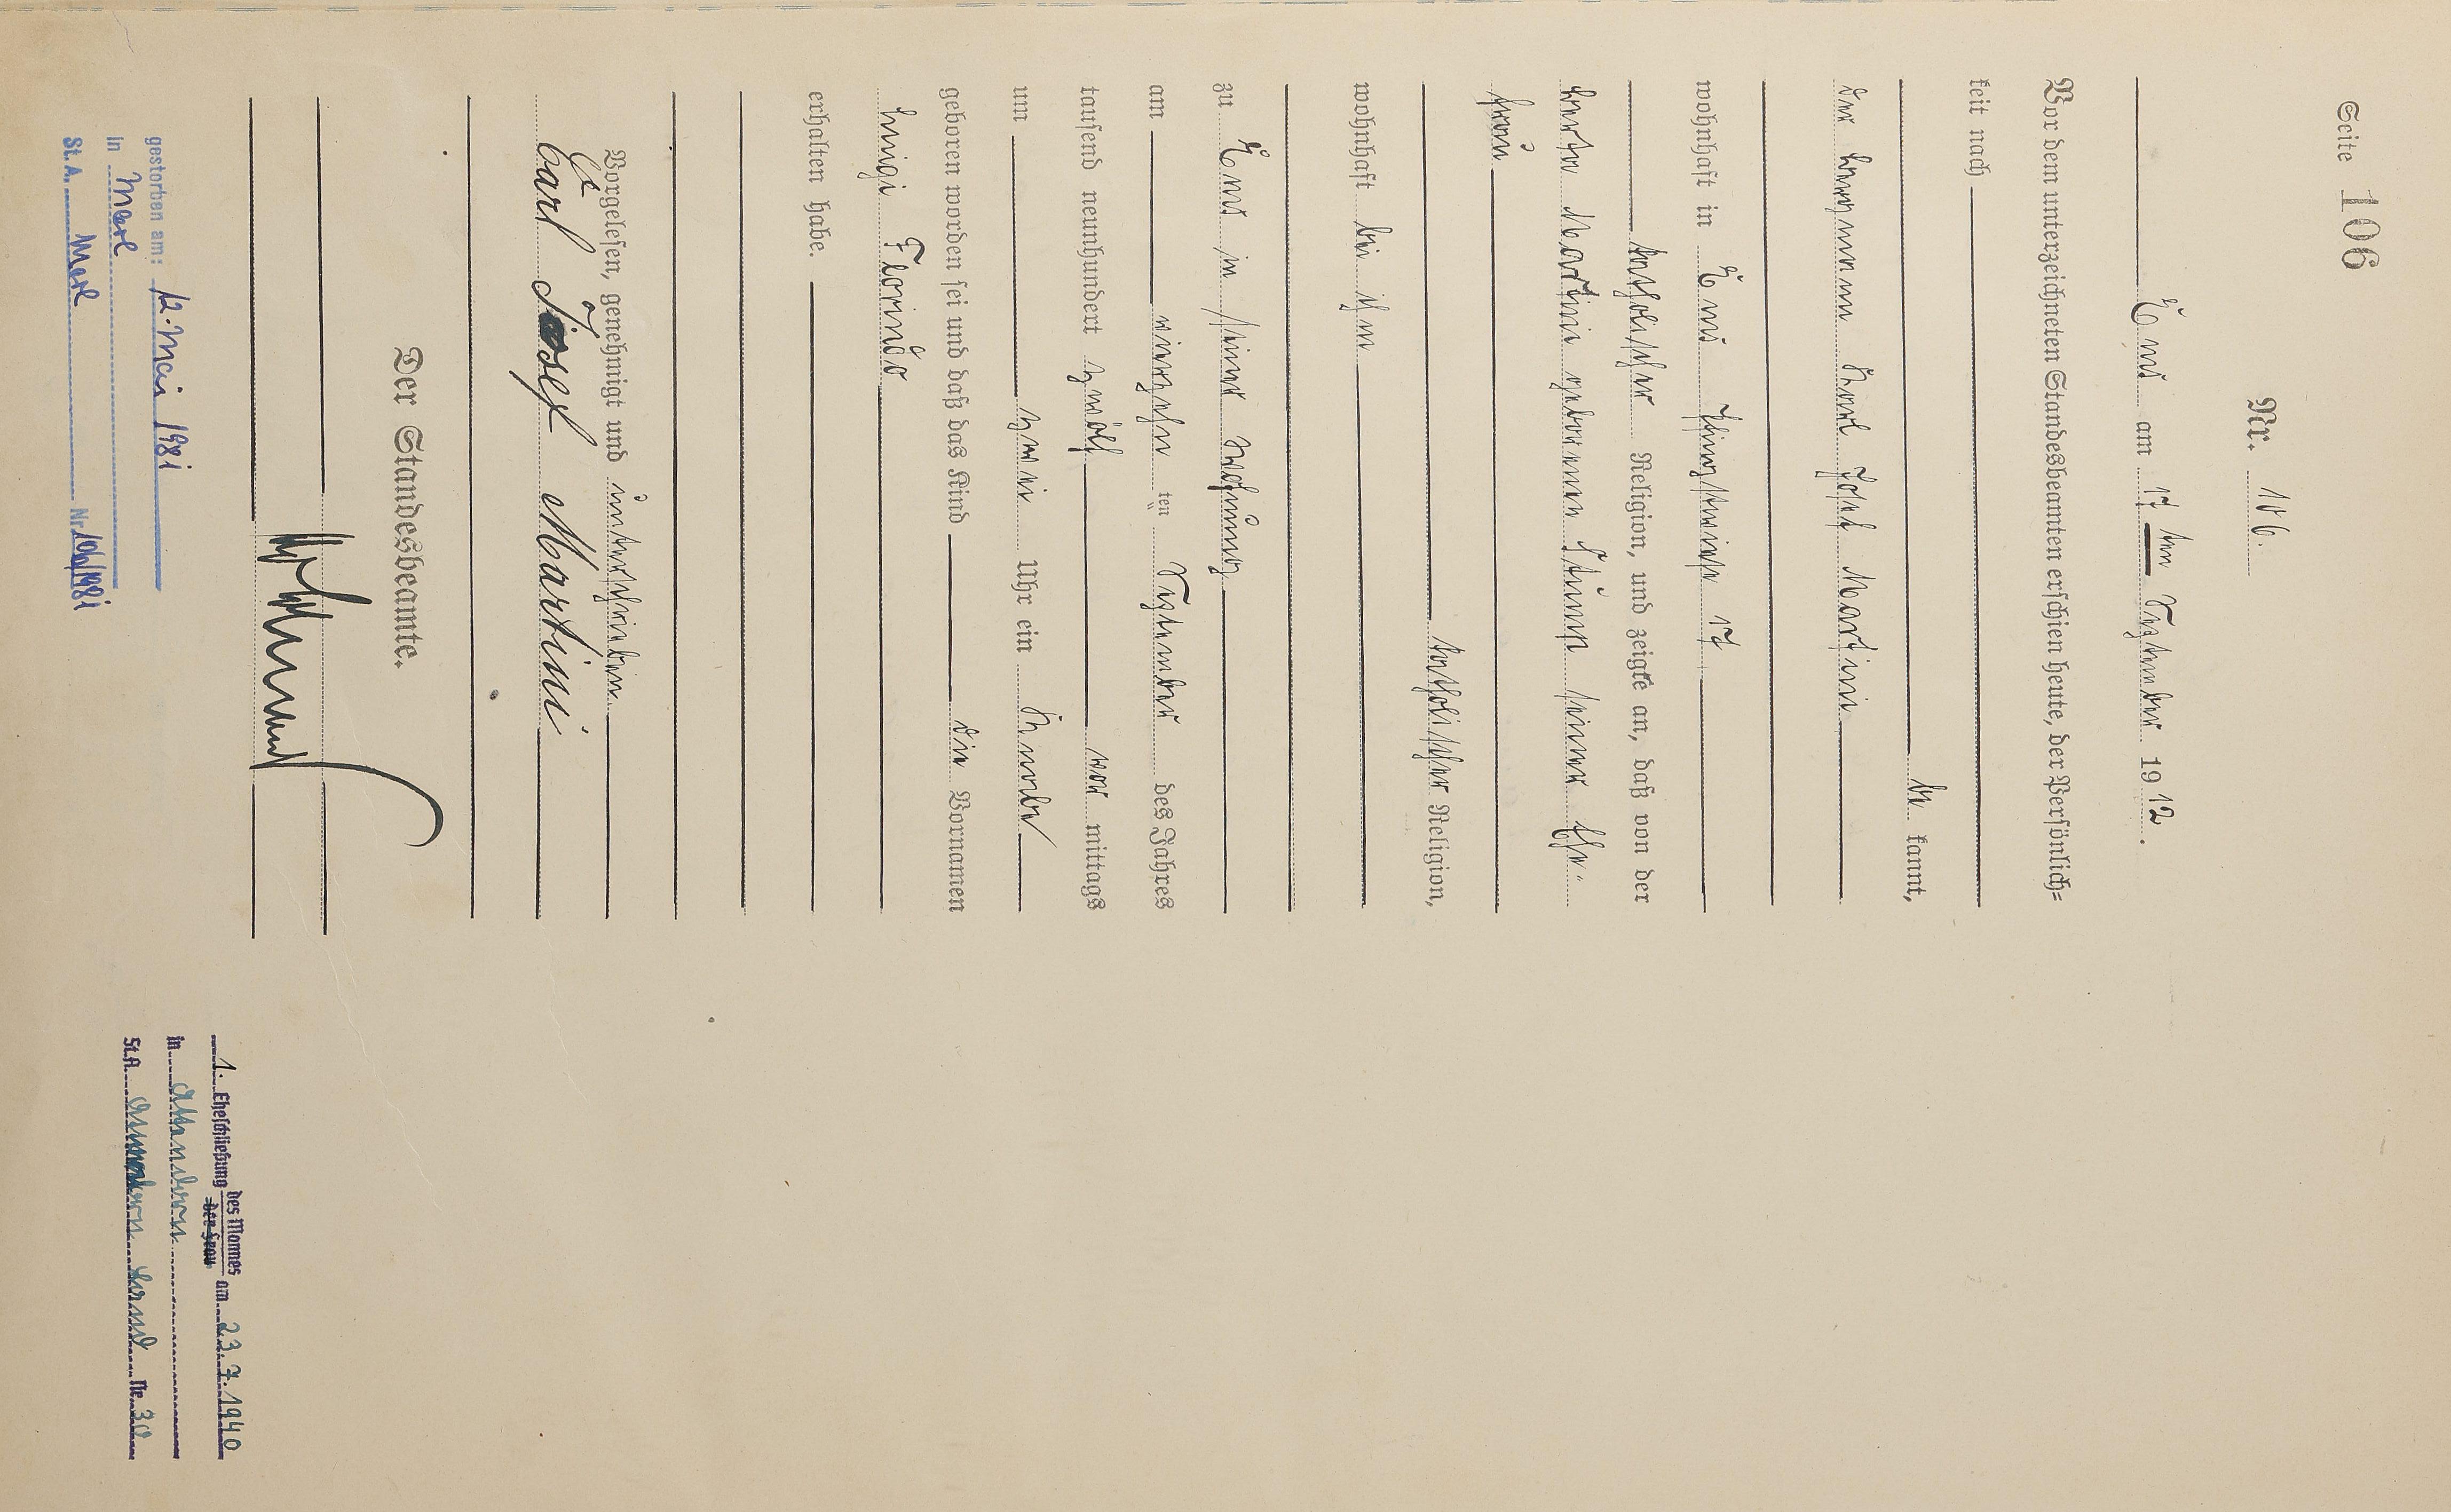 Seite 106
Nr. 106.
Ems am 17 ten Dezember 1912.
Vor dem unterzeichneten Standesbeamten erschien heute, der Persönlich=
keit nach
be kannt,
der Bergmann Karl Josef Martini
wohnhaft in Ems Pfingstwiese 17
katholischer Religion, und zeigte an, daß von der
Berta Martini geborenen Stump seiner Ehe-
frau
katholischer Religion,
wohnhaft bei ihm
zu Ems in seiner Wohnung
am vierzehn ten Dezember des Jahres
tausend neunhundert zwölf vor mittags
um zwei Uhr ein Knabe
geboren worden sei und daß das Kind die Vornamen
Luigi Florindo
erhalten habe.
Vorgelesen, genehmigt und unterschrieben.
Carl Josef Martini
Der Standesbeamte.
gestorben am: 12. Mai 1981
in Marl
St. A. Marl Nr. 106/1981
1. Eheschließung des Mannes
der Frau
am 23. 7. 1940
in Attendorn
St.A. Attendorn Land Nr. 30